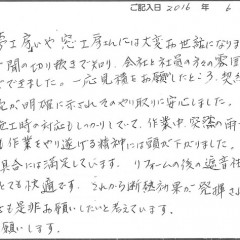 ご記入日 2016 年 6
夢工房いや 窓工房さんには大変お世話になりま
聞の切り抜きで知り、会社と社員の方の雰囲
できました。一応見積をお願いしたところ、契約
が明確に示されそのやり取りに安心しました。
施工時の対応もしっかりしていて、作業中、突然の雨
も作業をやり遂げる精神には頭が下がりました。
具合には満足しています。リフォームの後の遮音性
とても快適です。これから断熱効果が発揮さ
も是非お願いしたいと考えています。
願いします。